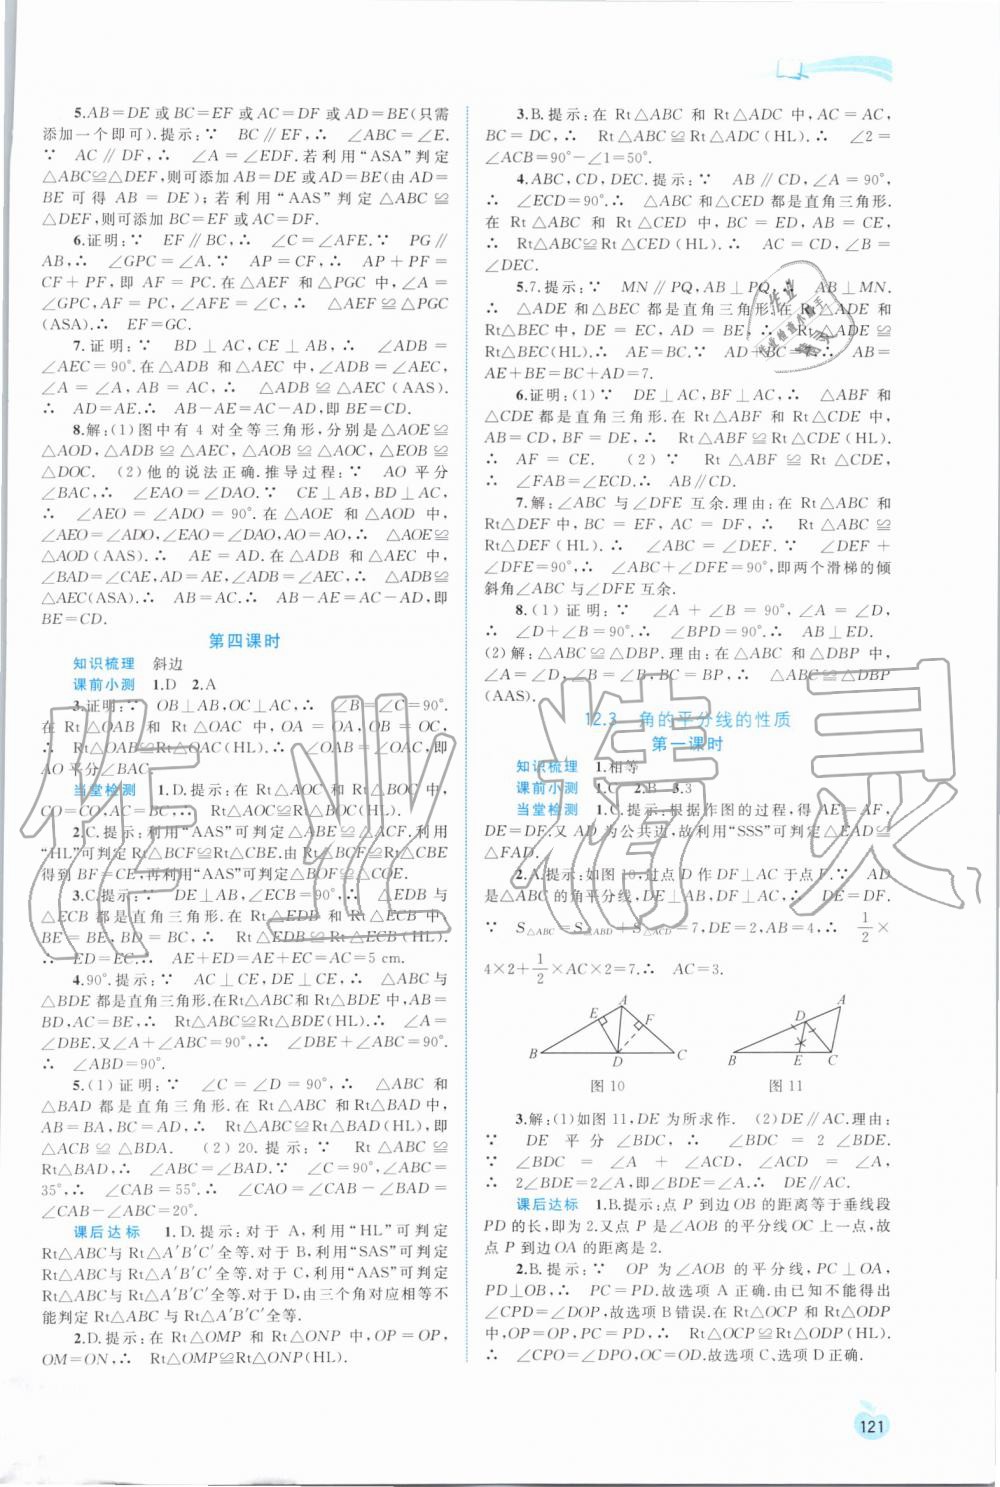 5.AB=DE或BC=EF或AC=DF或AD=BE(只需
添加一个即可).提示:∵ BC∥EF,∴ ∠ABC=∠E.
∵ AC∥DF,∴ ∠A=∠EDF.若利用“ASA”判定
△ABC≌△DEF,则可添加AB=DE或AD=BE(由AD=
BE可得AB=DE);若利用“AAS”判定△ABC≌
△DEF,则可添加BC=EF或AC=DF.
6.证明:∵ EF∥BC,∴ ∠C=∠AFE.∵ PG∥
AB,∴ ∠GPC=∠A.∵ AP=CF,∴ AP+PF=
CF+PF,即AF=PC.在△AEF和△PGC中,∠A=
∠GPC,AF=PC,∠AFE=∠C,∴ △AEF≌△PGC
(ASA).∴ EF=GC.
7.证明:∵ BD⊥AC,CE⊥AB,∴ ∠ADB=
∠AEC=90°.在△ADB和△AEC中,∠ADB=∠AEC,
∠A=∠A,AB=AC,∴ △ADB≌△AEC(AAS).
∴ AD=AE.∴ AB-AE=AC-AD,即BE=CD.
8.解:(1)图中有4对全等三角形,分别是△AOE≌
△AOD,△ADB≌△AEC,△AOB≌△AOC,△EOB≌
△DOC. (2)他的说法正确.推导过程:∵ AO平分
∠BAC,∴ ∠EAO=∠DAO.∵ CE⊥AB,BD⊥AC,
∴ ∠AEO=∠ADO=90°.在△AOE和△AOD中,
∠AEO=∠ADO,∠EAO=∠DAO,AO=AO,∴ △AOE≌
△AOD(AAS).∴ AE=AD.在△ADB和△AEC中,
∠BAD=∠CAE,AD=AE,∠ADB=∠AEC,∴ △ADB≌
△AEC(ASA).∴ AB=AC.∴ AB-AE=AC-AD,即
BE=CD.
第四课时
知识梳理 斜边
课前小测 1.D 2.A
3.证明:∵ OB⊥AB,OC⊥AC,∴ ∠B=∠C=90°.
在Rt△OAB和Rt△OAC中,OA=OA,OB=OC,
∴ Rt△OAB≌Rt△OAC(HL).∴ ∠OAB=∠OAC,即
AO平分∠BAC.
当堂检测 1.D.提示:在Rt△AOC和Rt△BOC中,
CO=CO,AC=BC,∴ Rt△AOC≌Rt△BOC(HL).
2.C.提示:利用“AAS”可判定△ABE≌△ACF.利用
“HL”可判定Rt△BCF≌Rt△CBE.由Rt△BCF≌Rt△CBE
得到BF=CE,再利用“AAS”可判定△BOF≌△COE.
3.C.提示:∵ DE⊥AB,∠ECB=90°,∴ ∠EDB与
△ECB都是直角三角形.在Rt△EDB和Rt△ECB中,
BE=BE,BD=BC,∴ Rt△EDB≌Rt△ECB(HL).
∴ ED=EC.∴ AE+ED=AE+EC=AC=5 cm.
4.90°.提示:∵ AC⊥CE,DE⊥CE,∴ △ABC与
△BDE都是直角三角形.在Rt△ABC和Rt△BDE中,AB=
BD,AC=BE,∴ Rt△ABC≌Rt△BDE(HL).∴ ∠A=
∠DBE.又∠A+∠ABC=90°,∴ ∠DBE+∠ABC=90°.
∴ ∠ABD=90°.
5.(1)证明:∵ ∠C=∠D=90°,∴ △ABC和
△BAD都是直角三角形.在Rt△ABC和Rt△BAD中,
AB=BA,BC=AD,∴ Rt△ABC≌Rt△BAD(HL),即
△ACB≌△BDA. (2)20.提示:∵ Rt△ABC≌
Rt△BAD,∴ ∠ABC=∠BAD.∵ ∠C=90°,∠ABC=
35°,∴ ∠CAB=55°.∴ ∠CAO=∠CAB-∠BAD=
∠CAB-∠ABC=20°.
课后达标 1.D.提示:对于A,利用“HL”可判定
Rt△ABC与Rt△A′B′C′全等.对于B,利用“SAS”可判定
Rt△ABC与Rt△A′B′C′全等.对于C,利用“AAS”可判定
Rt△ABC与Rt△A′B′C′全等.对于D,由三个角对应相等不
能判定Rt△ABC与Rt△A′B′C′全等.
2.D.提示:在Rt△OMP和Rt△ONP中,OP=OP,
OM=ON,∴ Rt△OMP≌Rt△ONP(HL).
3.B.提示:在Rt△ABC和Rt△ADC中,AC=AC,
BC=DC,∴ Rt△ABC≌Rt△ADC(HL).∴ ∠2=
∠ACB=90°-∠1=50°.
4.ABC,CD,DEC.提示:∵ AB∥CD,∠A=90°,
∴ ∠ECD=90°.∴ △ABC和△CED都是直角三角形.
在Rt△ABC和Rt△CED中,BC=ED,AB=CE,
∴ Rt△ABC≌Rt△CED(HL).∴ AC=CD,∠B=
∠DEC.
5.7.提示:∵ MN∥PQ,AB⊥PQ,∴ AB⊥MN.
∴ △ADE和△BEC都是直角三角形.在Rt△ADE和
Rt△BEC中,DE=EC,AD=BE,∴ Rt△ADE≌
Rt△BEC(HL).∴ AE=BC.∵ AD+BC=7,∴ AB=
AE+BE=BC+AD=7.
6.证明:(1)∵ DE⊥AC,BF⊥AC,∴ △ABF和
△CDE都是直角三角形.在Rt△ABF和Rt△CDE中,
AB=CD,BF=DE,∴ Rt△ABF≌Rt△CDE(HL).
∴ AF=CE. (2)∵ Rt△ABF≌Rt△CDE,∴
∠FAB=∠ECD.∴ AB∥CD.
7.解:∠ABC与∠DFE互余.理由:在Rt△ABC和
Rt△DEF中,BC=EF,AC=DF,∴ Rt△ABC≌
Rt△DEF(HL).∴ ∠ABC=∠DEF.∵ ∠DEF+
∠DFE=90°,∴ ∠ABC+∠DFE=90°,即两个滑梯的倾
斜角∠ABC与∠DFE互余.
8.(1)证明:∵ ∠A+∠B=90°,∠A=∠D,
∴ ∠D+∠B=90°.∴ ∠BPD=90°.∴ AB⊥ED.
(2)解:△ABC≌△DBP.理由:在△ABC和△DBP中,
∠A=∠D,∠B=∠B,BC=BP,∴ △ABC≌△DBP
(AAS).
12.3 角的平分线的性质
第一课时
知识梳理 1.相等
课前小测 1.C 2.B 3.3
当堂检测 1.C.提示:根据作图的过程,得AE=AF,
DE=DF.又AD为公共边,故利用“SSS”可判定△EAD≌
△FAD.
2.A.提示:如图10,过点D作DF⊥AC于点F.∵ AD
是△ABC的角平分线,DE⊥AB,DF⊥AC,∴ DE=DF.
∵ S△ABC=S△ABD+S△ACD=7,DE=2,AB=4,∴ 1/2×
4×2+1/2×AC×2=7.∴ AC=3.
A
E
F
B
D
C
图10
A
D
B
E
C
图11
3.解:(1)如图11,DE为所求作. (2)DE∥AC.理由:
∵ DE平分∠BDC,∴ ∠BDC=2∠BDE.
∵ ∠BDC=∠A+∠ACD,∠ACD=∠A,
∴ 2∠BDE=2∠A,即∠BDE=∠A.∴ DE∥AC.
课后达标 1.B.提示:点P到边OB的距离等于垂线段
PD的长,即为2.又点P是∠AOB的平分线OC上一点,故
点P到边OA的距离是2.
2.B.提示:∵ OP为∠AOB的平分线,PC⊥OA,
PD⊥OB,∴ PC=PD.故选项A正确.由已知不能得出
∠CPD=∠DOP,故选项B错误.在Rt△OCP和Rt△ODP
中,OP=OP,PC=PD,∴ Rt△OCP≌Rt△ODP(HL).
∴ ∠CPO=∠DPO,OC=OD.故选项C、选项D正确.
121
作业精灵